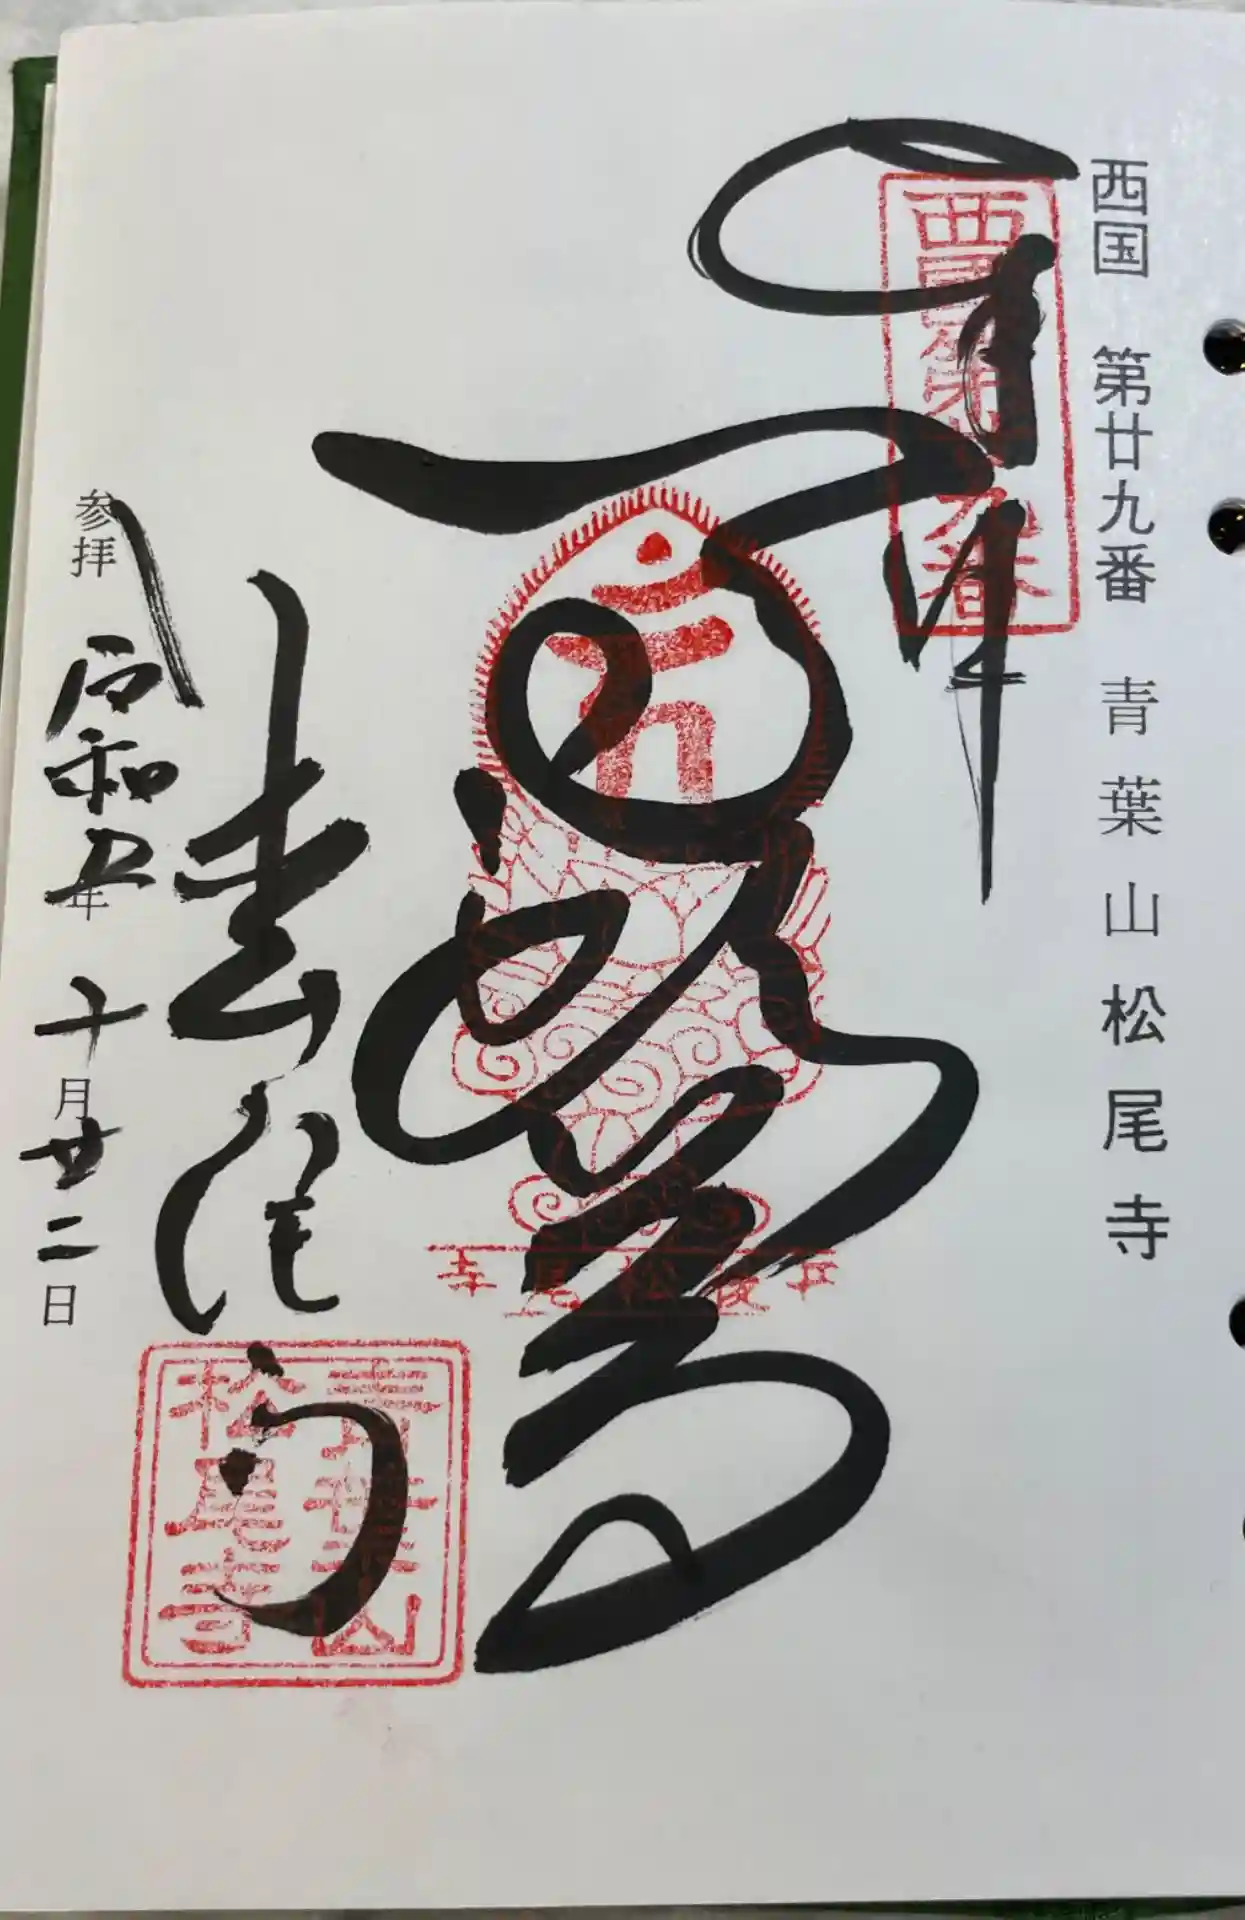 西国 第廿九番 青葉山松尾寺
奉拝
西國第廿九番
丹後松尾寺
松尾寺
青葉山
松尾寺
参拝 令和五年 十月廿二日